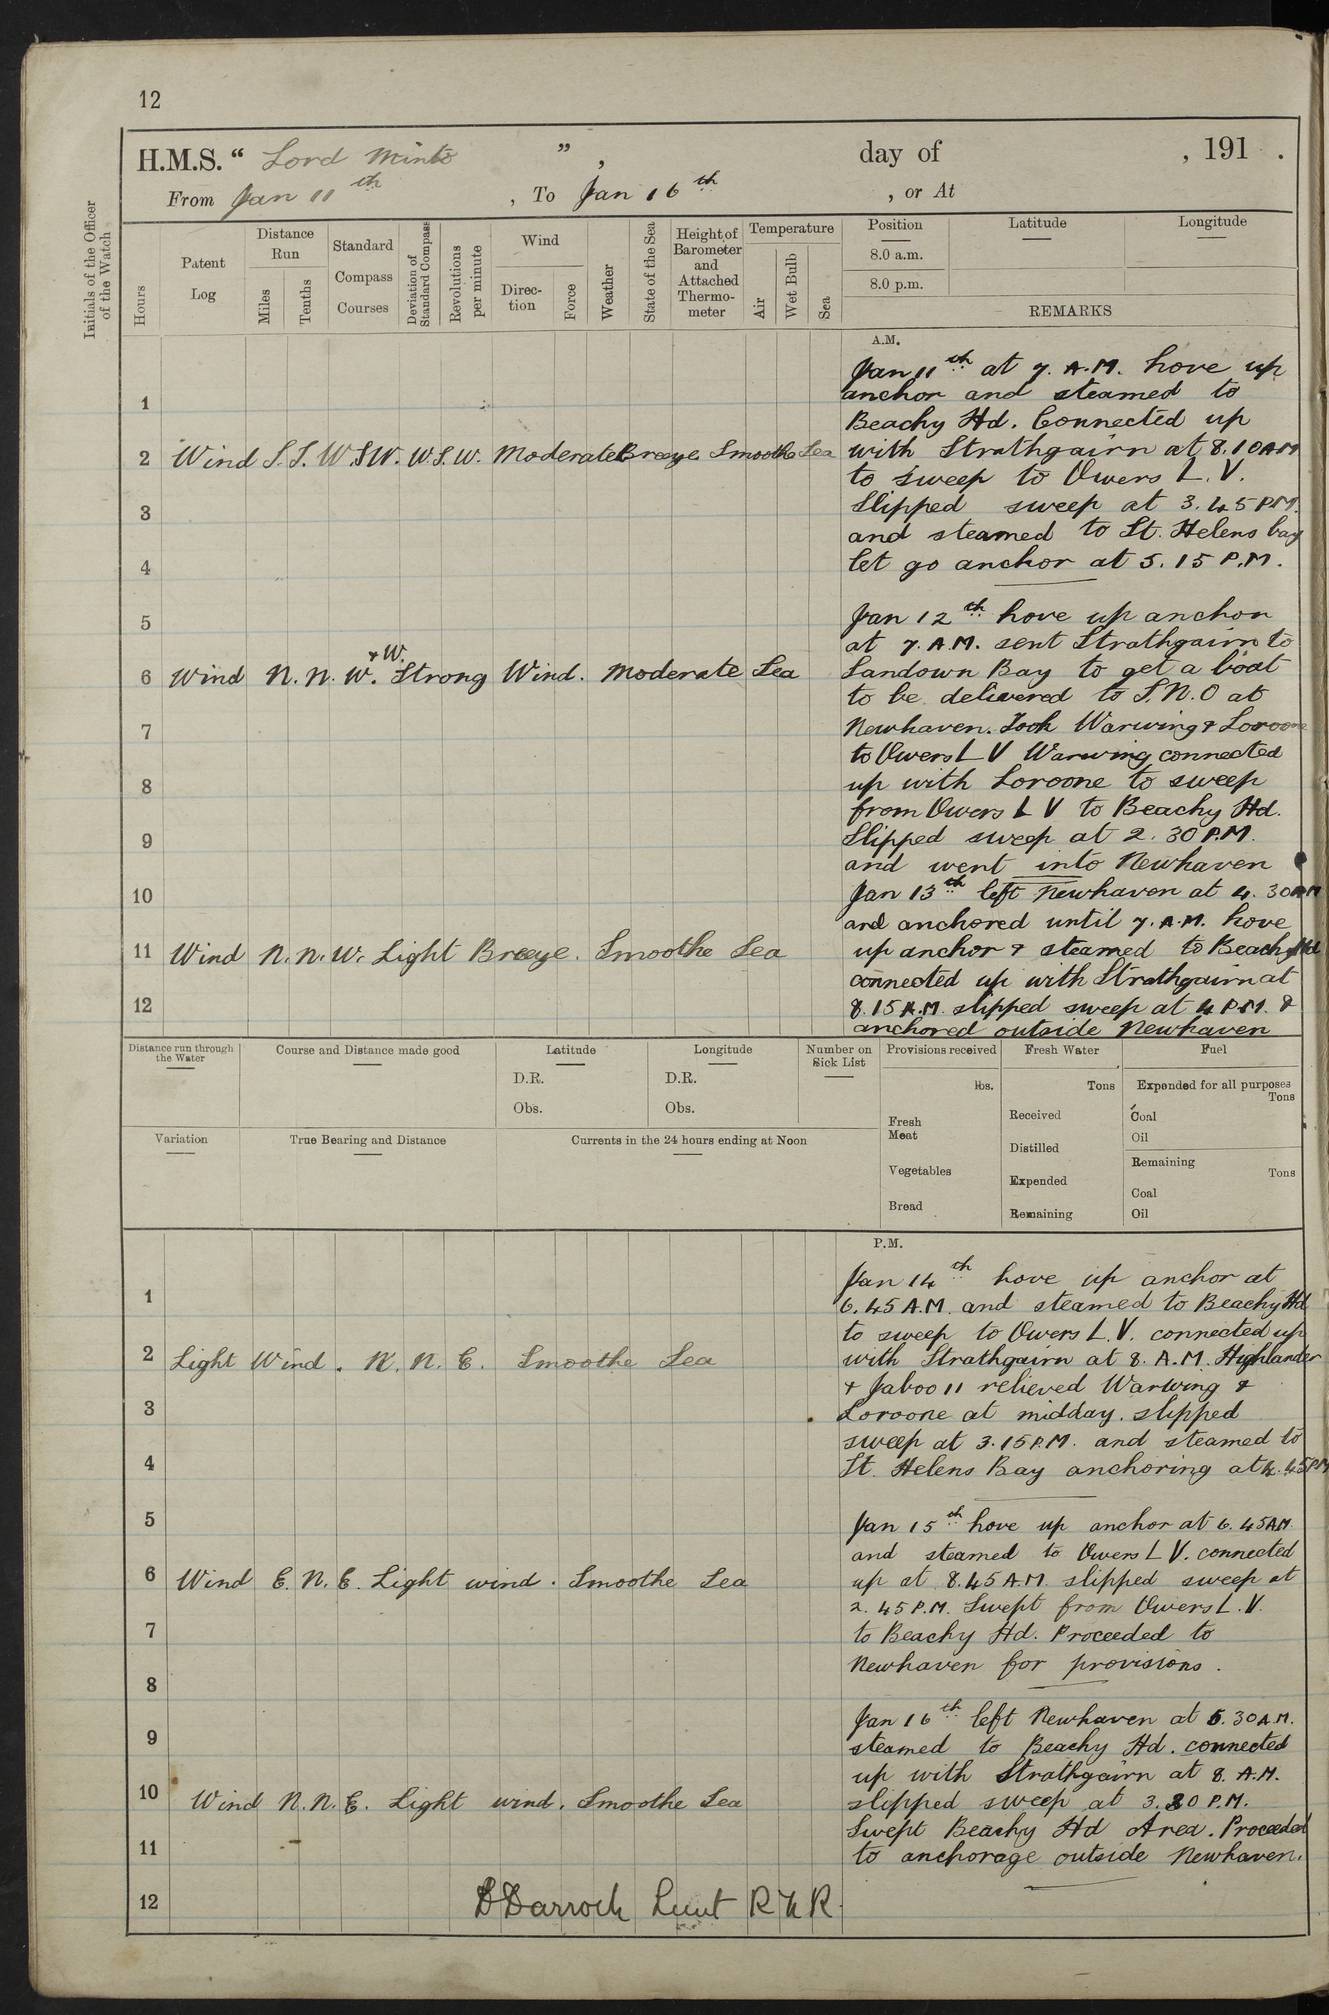 12
H.M.S. “ Lord Minto ” , day of , 191 .
From Jan 11th , To Jan 16th , or At
Initials of the Officer of the Watch
Hours
Patent Log
Distance Run
Miles
Tenths
Standard Compass Courses
Deviation of Standard Compass
Revolutions per minute
Wind
Direction
Force
Weather
State of the Sea
Height of Barometer and Attached Thermometer
Temperature
Air
Wet Bulb
Sea
Position
8.0 a.m.
8.0 p.m.
Latitude
Longitude
REMARKS
A.M.
Jan 11th at 7. A.M. hove up
1
anchor and steamed to
Beachy Hd. Connected up
2 Wind S.S.W. SW. W.S.W. Moderate Breeze Smoothe Sea
with Strathgairn at 8.10 AM
to sweep to Owers L.V.
3
Slipped sweep at 3.45 P.M.
and steamed to St. Helens bay
4
let go anchor at 5.15 P.M.
Jan 12th hove up anchor
5
at 7. A.M. sent Strathgairn to
6 Wind N. N. W. & W. Strong Wind. Moderate Sea
Sandown Bay to get a boat
to be delivered to S.N.O at
7
Newhaven. Took Warwing & Loroone
to Owers L V Warwing connected
8
up with Loroone to sweep
from Owers L V to Beachy Hd.
9
Slipped sweep at 2.30 P.M.
and went into Newhaven
10
Jan 13th left Newhaven at 4.30 AM
and anchored until 7. A.M. hove
11 Wind N. N. W. Light Breeze. Smoothe Sea
up anchor & steamed to Beachy Hd
connected up with Strathgairn at
12
8.15 A.M. slipped sweep at 4 P.M. &
anchored outside Newhaven
Distance run through the Water
Course and Distance made good
Latitude
D.R.
Obs.
Longitude
D.R.
Obs.
Number on Sick List
Provisions received
lbs.
Fresh Meat
Vegetables
Bread
Fresh Water
Tons
Received
Distilled
Expended
Remaining
Fuel
Expended for all purposes
Tons
Coal
Oil
Remaining
Tons
Coal
Oil
Variation
True Bearing and Distance
Currents in the 24 hours ending at Noon
P.M.
Jan 14th hove up anchor at
1
6.45 A.M. and steamed to Beachy Hd
to sweep to Owers L.V. connected up
2 Light Wind. N. N. E. Smoothe Sea
with Strathgairn at 8. A.M. Highlander
& Jaboo 11 relieved Warwing &
3
Loroone at midday. slipped
sweep at 3.15 P.M. and steamed to
4
St. Helens Bay anchoring at 4.45 PM
5
Jan 15th hove up anchor at 6.45 AM
and steamed to Owers L V. connected
6 Wind E. N. E. Light wind. Smoothe Sea
up at 8.45 A.M. slipped sweep at
2.45 P.M. Swept from Owers L.V.
7
to Beachy Hd. Proceeded to
Newhaven for provisions.
8
Jan 16th left Newhaven at 5.30 A.M.
9
steamed to Beachy Hd. connected
up with Strathgairn at 8. A.M.
10 Wind N. N. E. Light wind. Smoothe Sea
slipped sweep at 3.30 P.M.
Swept Beachy Hd Area. Proceeded
11
to anchorage outside Newhaven.
12
D Darroch Lieut R N R.